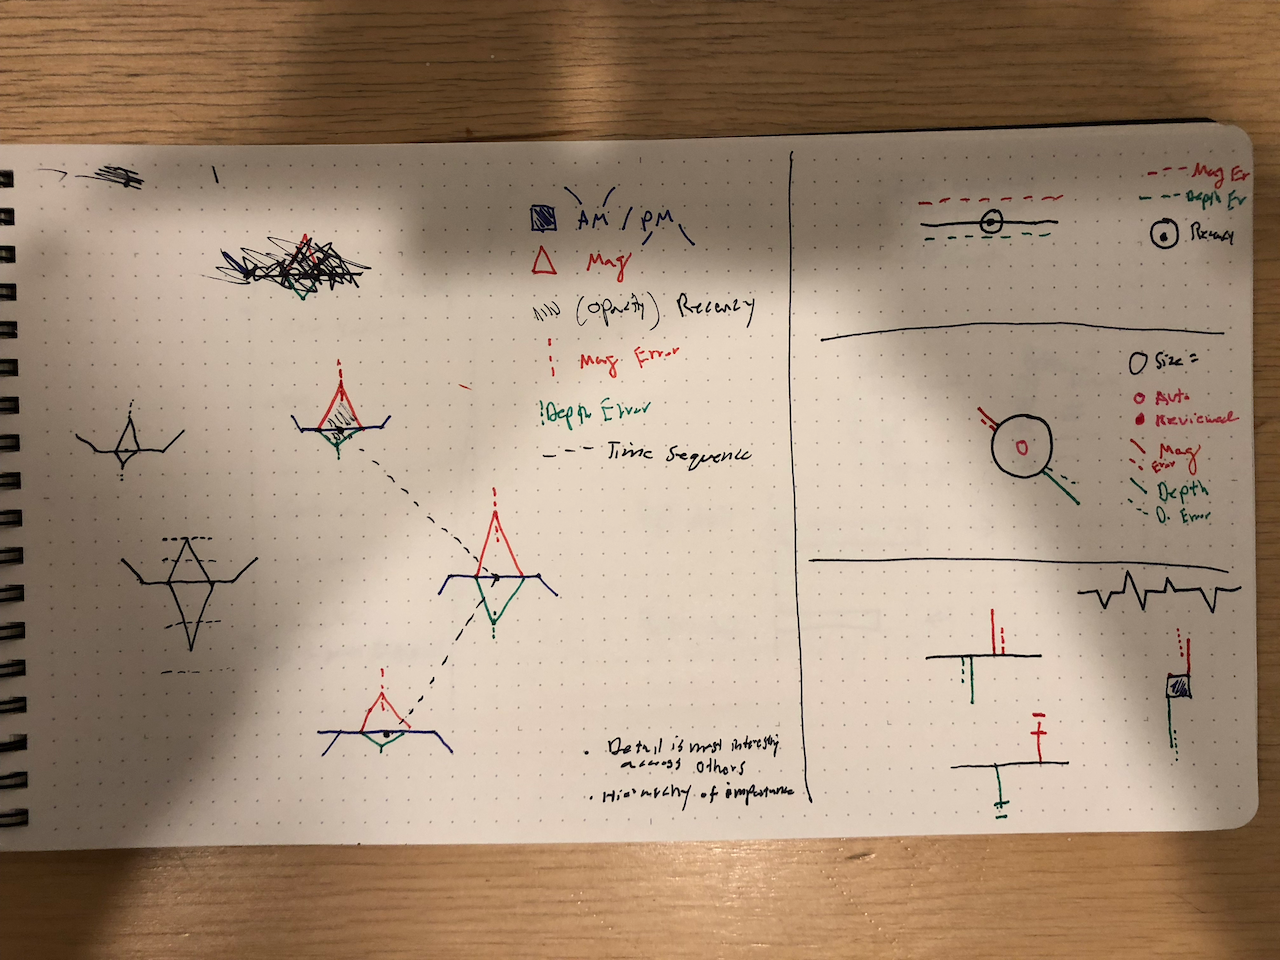 AM / PM
Mag
(opacity) Recency
Mag Error
Depth Error
Time Sequence
. Detail is most interesting
across others
. Hierarchy of importance
Mag Er
Depth Er
Recency
Size =
Auto
Reviewed
Mag
Error
Depth
D. Error